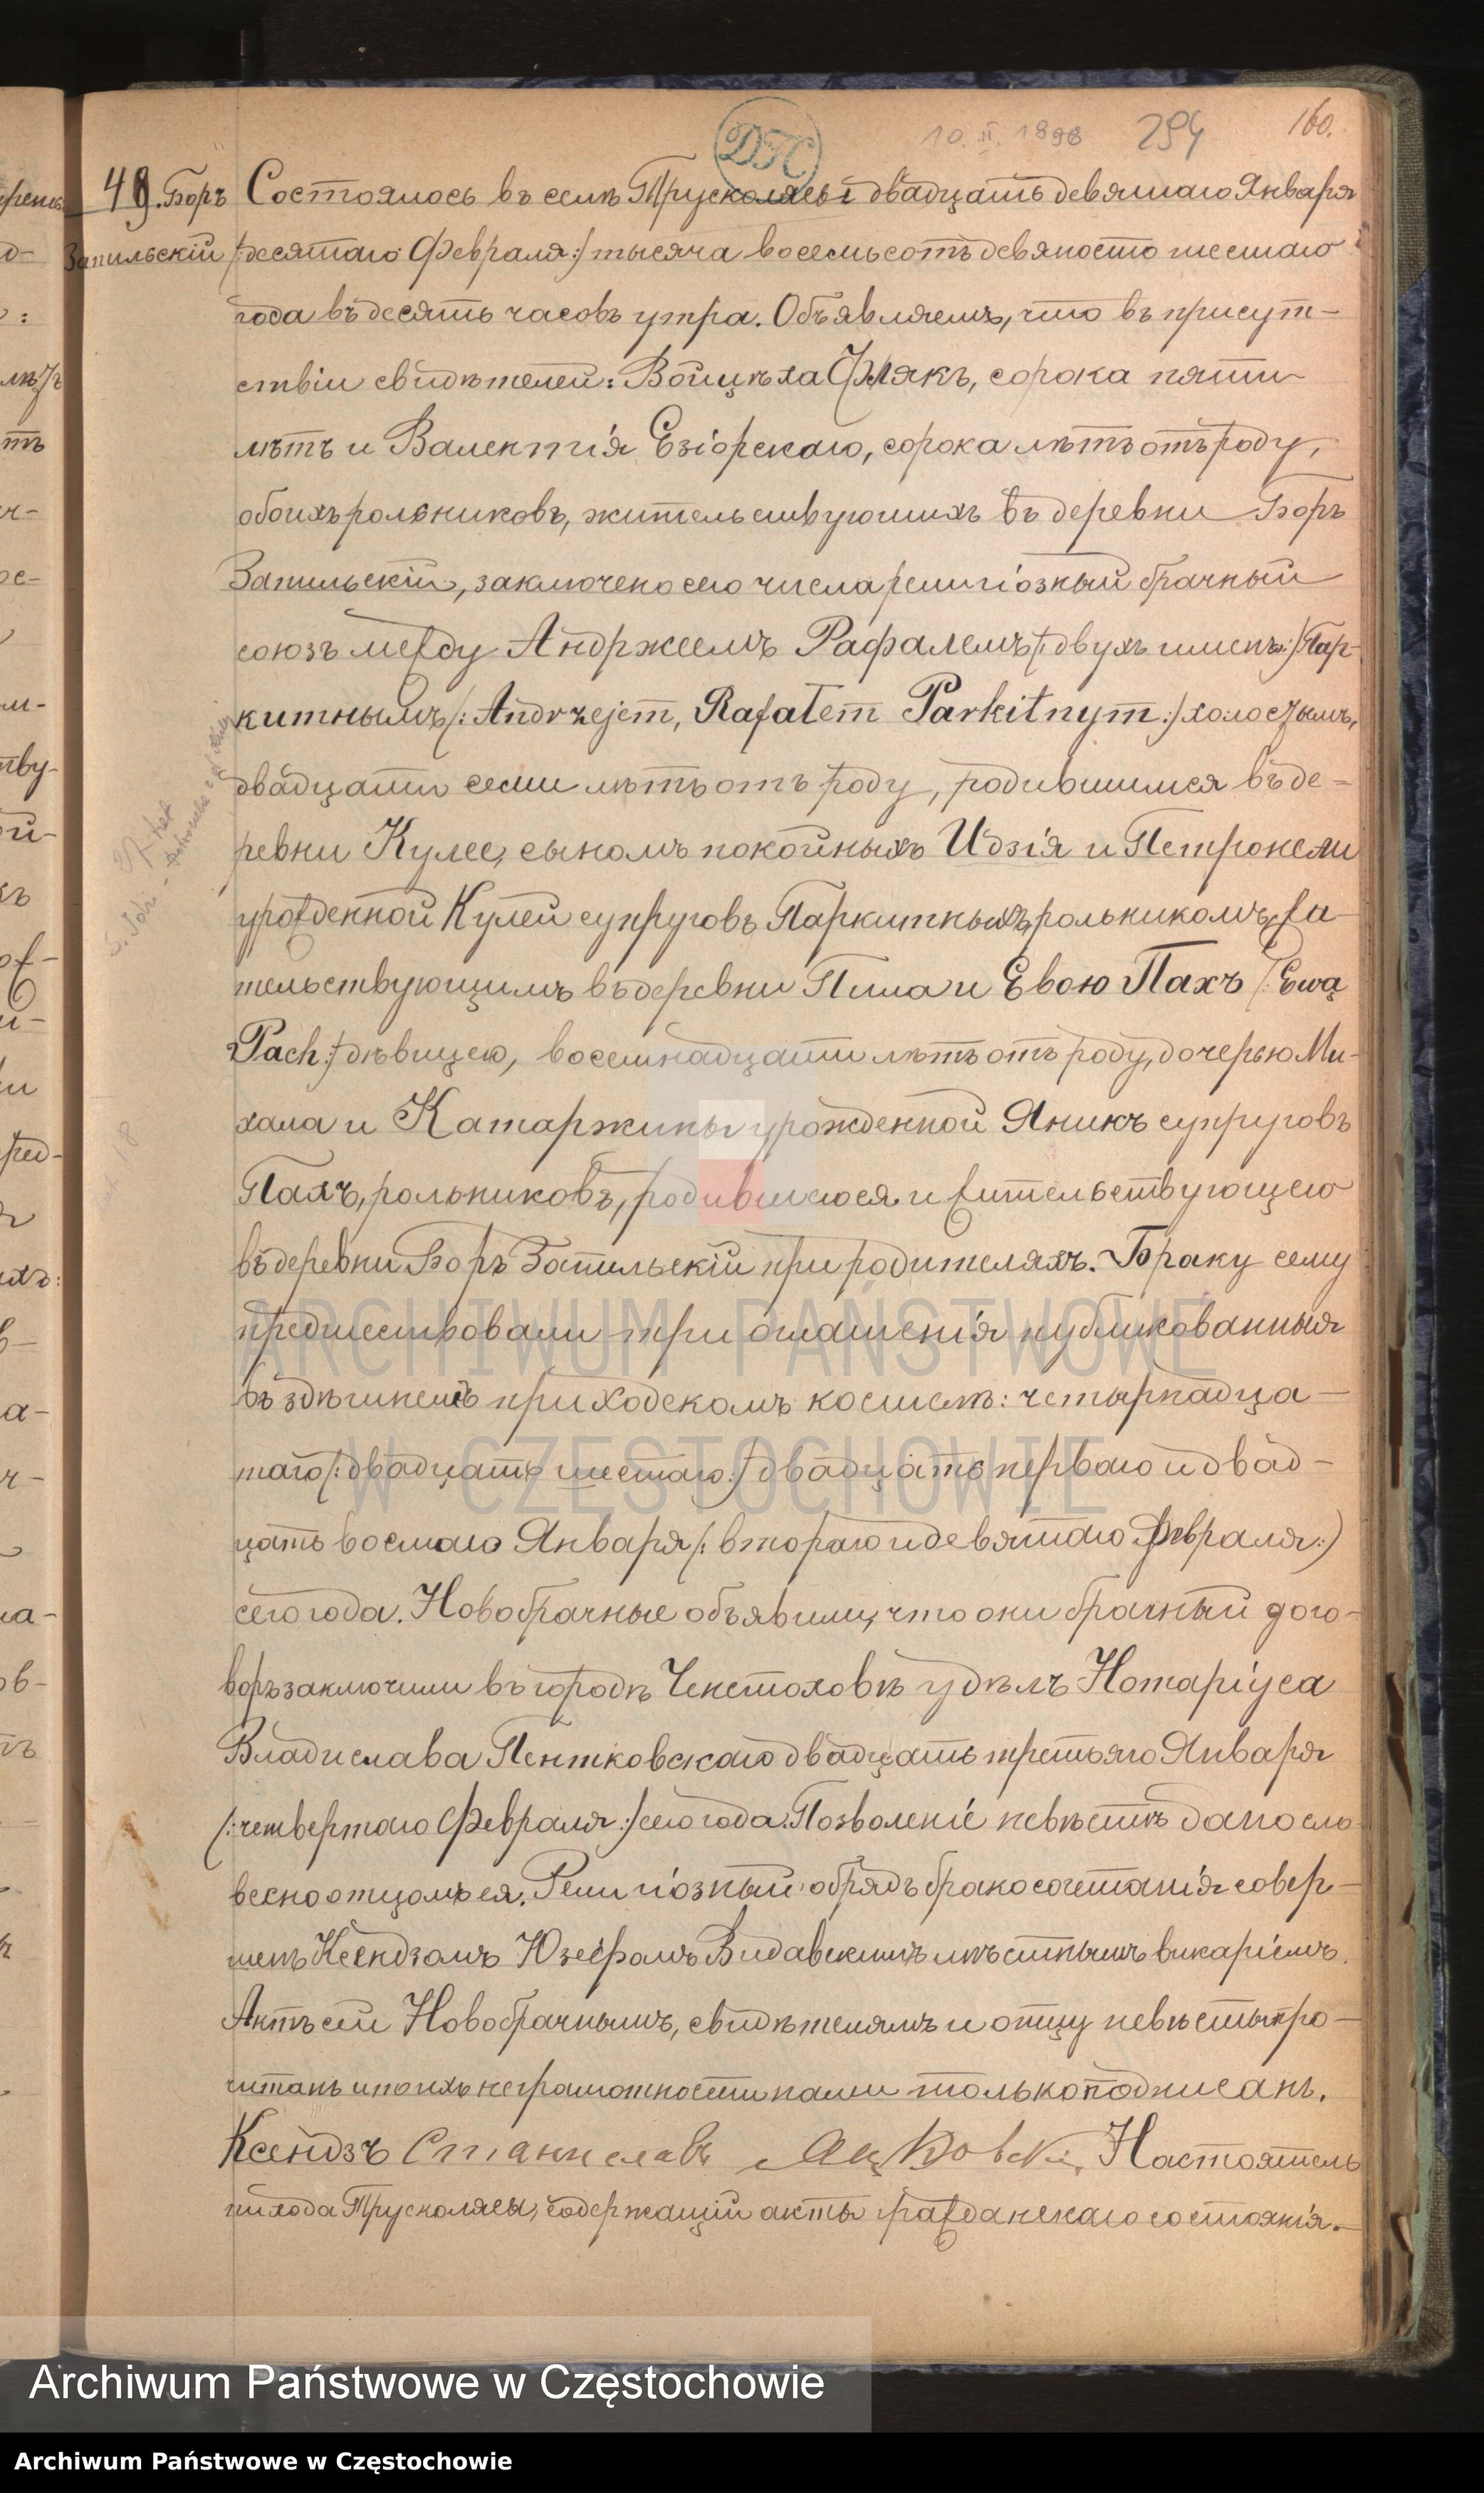 10. II. 1896 294 160.
49. Боръ Состоялось въ селѣ Трусколясы двадцать девятаго Января
Запильскій /:десятаго Февраля:/ тысяча восемьсотъ девяносто шестаго
года въ десять часовъ утра. Объявляемъ, что въ присут-
ствіи свидѣтелей: Войцѣха Флякъ, сорока пяти
лѣтъ и Валентія Езіорскаго, сорока лѣтъ отъ роду,
обоихъ рольниковъ, жительствующихъ въ деревни Боръ
Запильскій, заключено сего числа религіозный брачный
союзъ между Андржеемъ Рафалемъ /:двухъ именъ:/ Пар-
китнымъ /:Andrzejem, Rafałem Parkitnym:/ холостымъ,
двадцати семи лѣтъ отъ роду, родившимся въ де-
ревни Кулее, сыномъ покойныхъ Идзія и Петронели
урожденной Кулей супруговъ Паркитныхъ, рольникомъ, жи-
тельствующимъ въ деревни Пила и Евою Пахъ /:Ewą
Pach:/ дѣвицею, восемнадцати лѣтъ отъ роду, дочерью Ми-
хала и Катаржины урожденной Яникъ супруговъ
Пахъ, рольниковъ, родившеюся и жительствующею
въ деревни Боръ Запильскій при родителяхъ. Браку сему
предшествовали три оглашенія публикованныя
въ здѣшнемъ приходскомъ костелѣ: четырнадца-
таго /:двадцать шестаго:/ двадцать перваго и двад-
цать восмаго Января /:втораго и девятаго Февраля:/
сего года. Новобрачные объявили, что они брачный дого-
воръ заключили въ городѣ Ченстоховѣ у дѣлъ Нотаріуса
Владислава Пентковскаго двадцать третьяго Января
/:четвертаго Февраля:/ сего года. Позволеніе невѣстѣ дано сло-
весно отцомъ ея. Религіозный обрядъ бракосочетанія совер-
шенъ Ксендзомъ Юзефомъ Видавскимъ мѣстнымъ викаріемъ.
Актъ сей Новобрачнымъ, свидѣтелямъ и отцу невѣсты про-
читанъ и по ихъ неграмотности нами только подписанъ.
Ксендзъ Станиславъ Настоятель
прихода Трусколясы, содержащій акты гражданскаго состоянія.
ARCHIWUM PAŃSTWOWE
W CZĘSTOCHOWIE
Archiwum Państwowe w Częstochowie
Archiwum Państwowe w Częstochowie